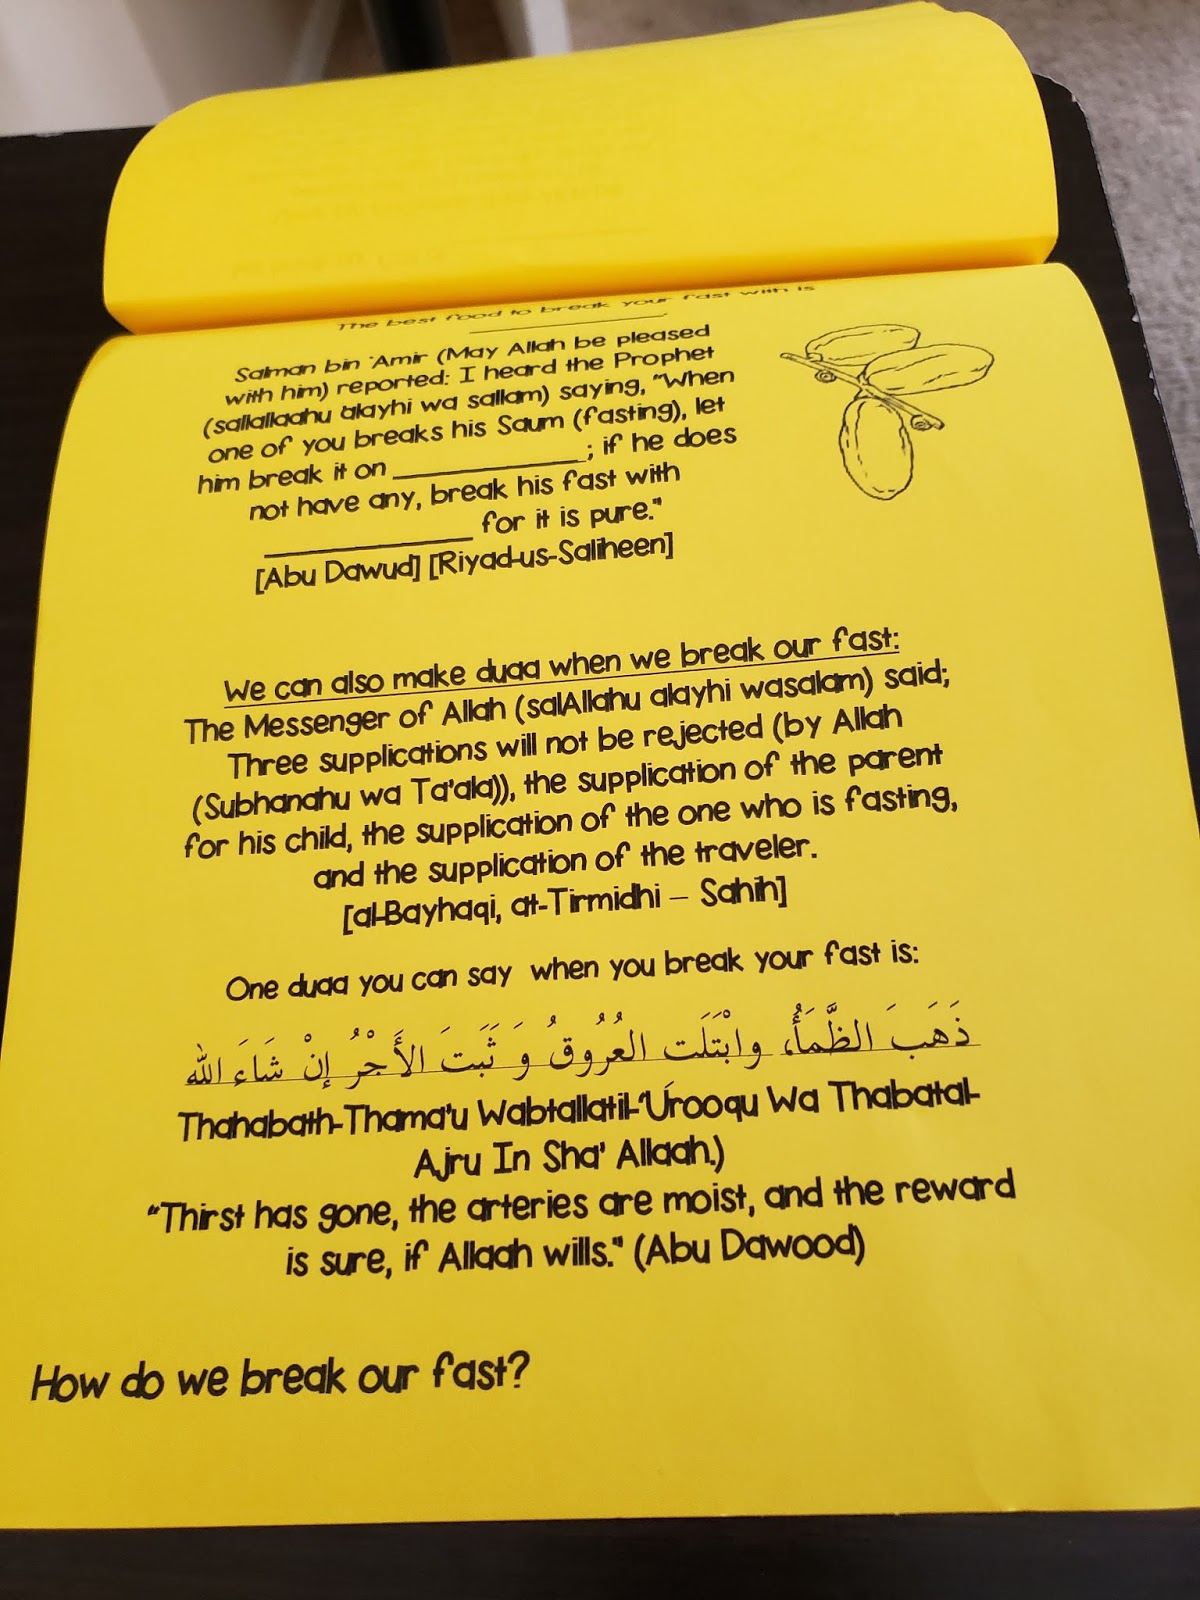 The best food to break your fast with is
____________________.
Salman bin 'Amir (May Allah be pleased
with him) reported: I heard the Prophet
(sallallaahu 'alayhi wa sallam) saying, "When
one of you breaks his Saum (fasting), let
him break it on ________________; if he does
not have any, break his fast with
________________ for it is pure."
[Abu Dawud] [Riyad-us-Saliheen]
We can also make duaa when we break our fast:
The Messenger of Allah (salAllahu alayhi wasalam) said;
Three supplications will not be rejected (by Allah
(Subhanahu wa Ta'ala)), the supplication of the parent
for his child, the supplication of the one who is fasting,
and the supplication of the traveler.
[al-Bayhaqi, at-Tirmidhi – Sahih]
One duaa you can say when you break your fast is:
ذَهَبَ الظَّمَأُ، وابْتَلَت العُرُوقُ وَ ثَبَتَ الأَجْرُ إنْ شَاءَ الله
Thahabath-Thama'u Wabtallatil-'Urooqu Wa Thabatal-
Ajru In Sha' Allaah.)
"Thirst has gone, the arteries are moist, and the reward
is sure, if Allaah wills." (Abu Dawood)
How do we break our fast?